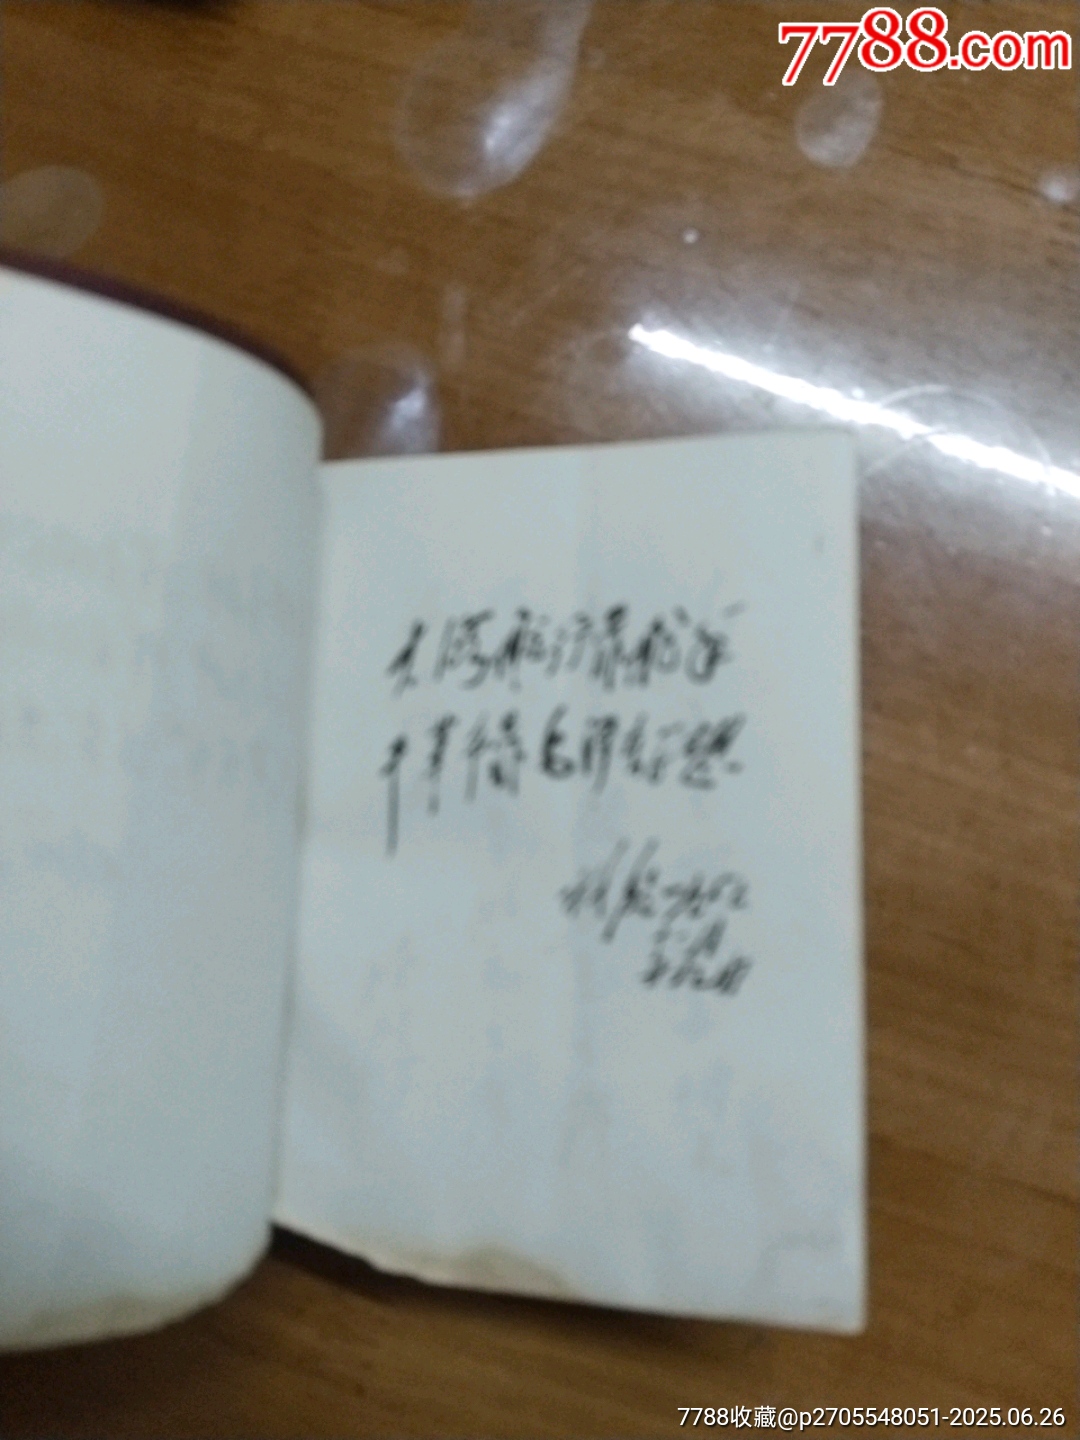 7788.com
大海航行靠舵手
干革命靠毛泽东思想
林彪
7788收藏@p2705548051-2025.06.26